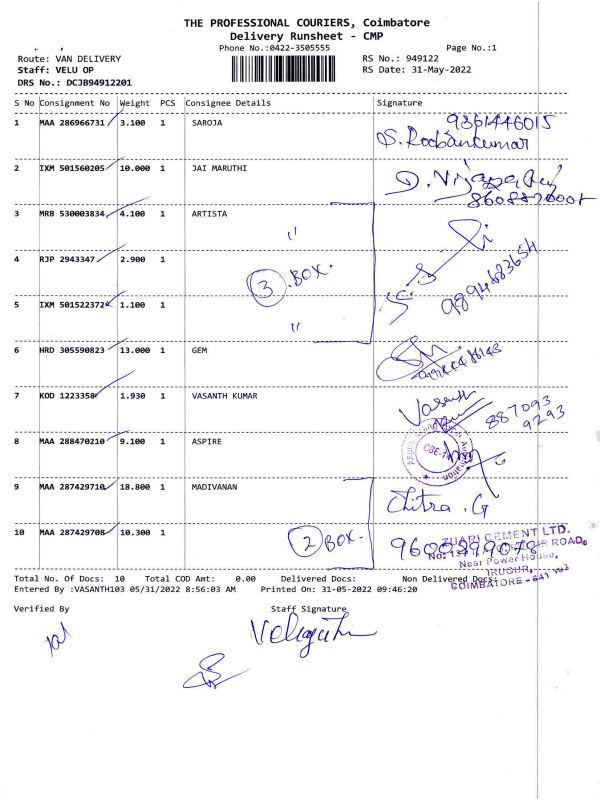 THE PROFESSIONAL COURIERS, Coimbatore
Delivery Runsheet - CMP
Phone No.:0422-3505555 Page No.:1
Route: VAN DELIVERY RS No.: 949122
Staff: VELU OP RS Date: 31-May-2022
DRS No.: DCJB94912201
S No Consignment No Weight PCS Consignee Details Signature
1 MAA 286966731 3.100 1 SAROJA 9361446015
2 IXM 501560205 10.000 1 JAI MARUTHI
3 MRB 530003834 4.100 1 ARTISTA
"
4 RJP 2943347 2.900 1
3 BOX. 9894683654
5 IXM 501522372 1.100 1
"
6 HRD 305590823 13.000 1 GEM
7 KOD 1223358 1.930 1 VASANTH KUMAR Vasanth
887093
9293
8 MAA 288470210 9.100 1 ASPIRE
9 MAA 287429710 18.800 1 MADIVANAN
Chitra . G
10 MAA 287429708 10.300 1 2 BOX.
ZUARI CEMENT LTD.
Near Power House,
IRUGUR,
COIMBATORE - 641 103
Total No. Of Docs: 10 Total COD Amt: 0.00 Delivered Docs: Non Delivered Docs:
Entered By :VASANTH103 05/31/2022 8:56:03 AM Printed On: 31-05-2022 09:46:20
Verified By Staff Signature